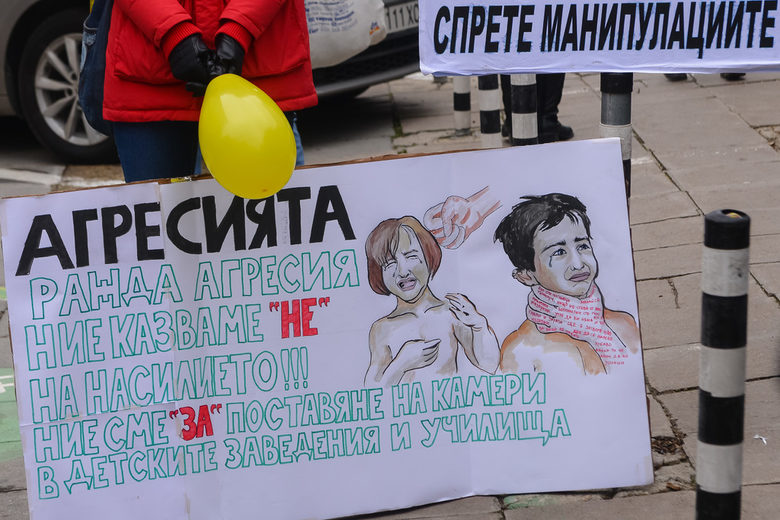 СПРЕТЕ МАНИПУЛАЦИИТЕ
АГРЕСИЯТА
РАЖДА АГРЕСИЯ
НИЕ КАЗВАМЕ "НЕ"
НА НАСИЛИЕТО!!!
НИЕ СМЕ "ЗА" ПОСТАВЯНЕ НА КАМЕРИ
В ДЕТСКИТЕ ЗАВЕДЕНИЯ И УЧИЛИЩА